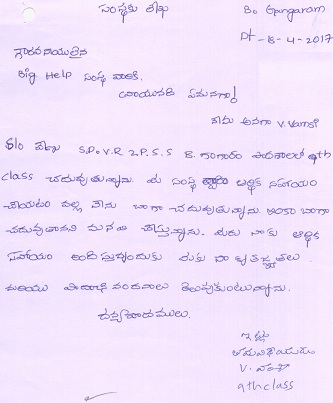 సంస్థకు లేఖ
B. Gangaram
Dt - 8 - 4 - 2017
గౌరవనీయులైన
Big Help సంస్థ వారికి,
వ్రాయునది ఏమనగా!
నేను అనగా V.
S/o S.P.V.R Z.P.S.S B. గంగారం పాఠశాలలో 9th
class చదువుతున్నాను. మీ సంస్థ ద్వారా ఆర్థిక సహాయం
చేయటం వల్ల నేను బాగా చదువుతున్నాను. ఇంకా బాగా
చదువుతానని మనవి చేస్తున్నాను. మీరు నాకు ఆర్థిక
సహాయం అందిస్తున్నందుకు మీకు నా కృతజ్ఞతలు
మరియు పాదాభివందనాలు తెలుపుకుంటున్నాను.
ధన్యవాదములు.
ఇట్లు
తమ విధేయుడు
V.
9th class